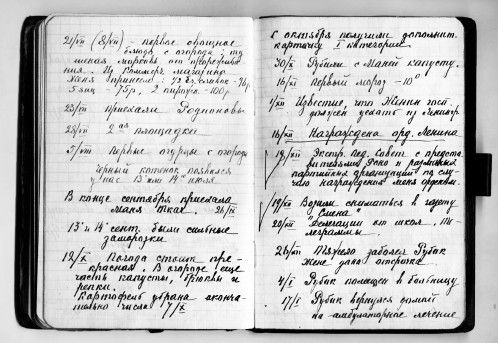 21/VII (8/VII) - первое овощное
блюдо с огорода: ту
шеная морковь от прорежива
ния. Из Коммерч. магазина
Женя принесла: 1/2 кг. сливок - 76 р.
5 яиц - 75 р, 2 пирожн. - 100 р.
23/VII приехали Родионовы
28/VII 2ая площадка
5/VIII Первые огурцы с огорода
Черный котенок появился
у нас 13 или 14го июля
В конце сентября приехала
Маня Ткач. 26/IX
13 и 14 сент. были сильные
заморозки
12/X Погода стоит пре-
красная. В огороде еще
часть капусты, брюквы и
репки.
Картофель убрана оконча-
тельно числа 17/X
С октября получили дополнит.
карточку I категории
30/X Рубили с Маней капусту.
16/XI Первый мороз - 10°
Известие, что Женин госп.
должен уехать из Ленингр.
16/XII Награждена орд. Ленина
19/XII Экстр. Пед. Совет с предста
вителями Роно и районных
партийных организаций по слу-
чаю награждения меня орденом.
19/XII Возили сниматься в газету
"Смена"
20/XII Делегации от школ. Те-
леграммы.
26/XII Тяжело заболел Рубик
Жене дана отсрочка
4/I Рубик помещен в больницу
17/I Рубик вернулся домой
на амбулаторное лечение